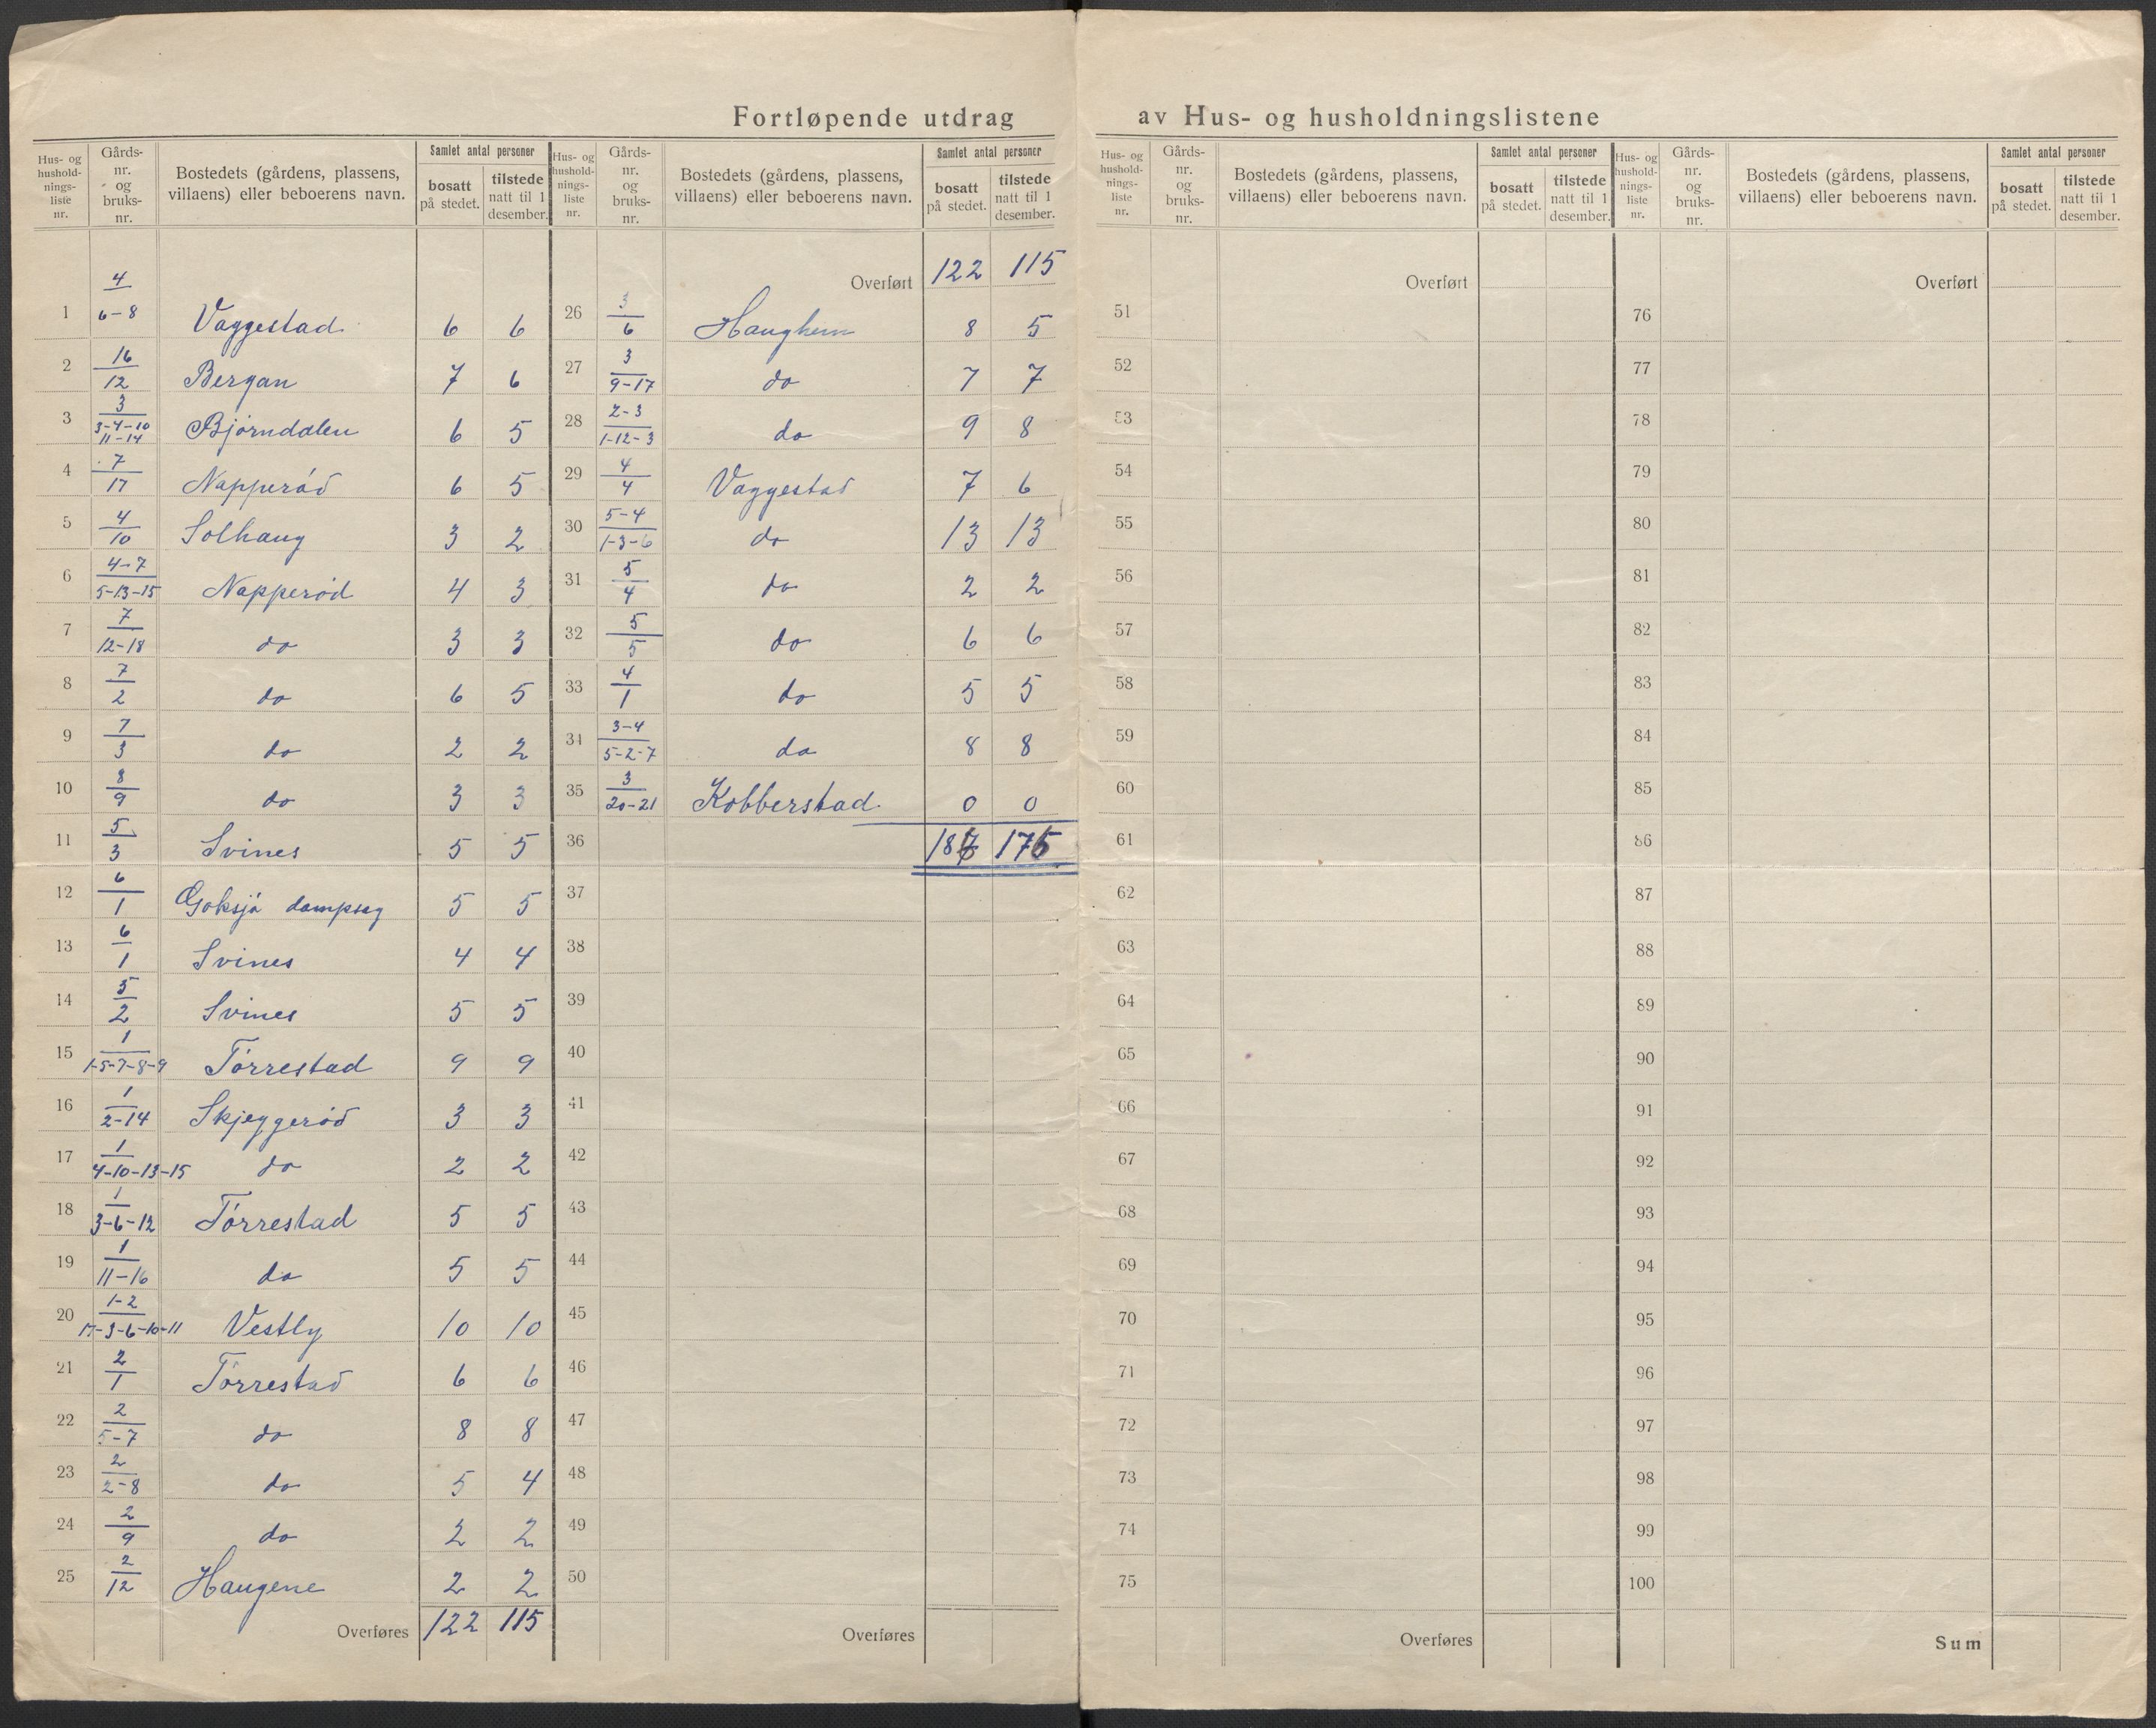 Fortløpende utdrag av Hus- og husholdningslistene
Hus- og husholdnings-liste nr. | Gårds-nr. og bruks-nr. | Bostedets (gårdens, plassens, villaens) eller beboerens navn. | Samlet antal personer | bosatt på stedet. | tilstede natt til 1 desember.
1 4/6-8 Vaggestad 6 6
2 16/12 Bergan 7 6
3 3/3-4-10 11-14 Bjørndalen 6 5
4 7/17 Napperød 6 5
5 4/10 Solhaug 3 2
6 4-7/5-13-15 Napperød 4 3
7 7/12-18 do 3 3
8 7/2 do 6 5
9 7/3 do 2 2
10 8/9 do 3 3
11 5/3 Svines 5 5
12 6/1 Goksjø dampsag 5 5
13 6/1 Svines 4 4
14 5/2 Svines 5 5
15 1/1-5-7-8-9 Tørrestad 9 9
16 1/2-14 Skjeggerød 3 3
17 1/4-10-13-15 do 2 2
18 1/3-6-12 Tørrestad 5 5
19 1/11-16 do 5 5
20 1-2/17-3-6-10-11 Vestly 10 10
21 2/1 Tørrestad 6 6
22 2/5-7 do 8 8
23 2/2-8 do 5 4
24 2/9 do 2 2
25 2/12 Haugene 2 2
Overføres 122 115
Hus- og husholdnings-liste nr. | Gårds-nr. og bruks-nr. | Bostedets (gårdens, plassens, villaens) eller beboerens navn. | Samlet antal personer | bosatt på stedet. | tilstede natt til 1 desember.
Overført 122 115
26 3/6 Haughem 8 5
27 3/9-17 do 7 7
28 2-3/1-12-3 do 9 8
29 4/4 Vaggestad 7 6
30 5-4/1-3-6 do 13 13
31 5/4 do 2 2
32 5/5 do 6 6
33 4/1 do 5 5
34 3-4/5-2-7 do 8 8
35 3/20-21 Kobberstad 0 0
36
37
38
39
40
41
42
43
44
45
46
47
48
49
50
Overføres
Hus- og husholdnings-liste nr. | Gårds-nr. og bruks-nr. | Bostedets (gårdens, plassens, villaens) eller beboerens navn. | Samlet antal personer | bosatt på stedet. | tilstede natt til 1 desember.
Overført
51
52
53
54
55
56
57
58
59
60
61
62
63
64
65
66
67
68
69
70
71
72
73
74
75
Overføres
Hus- og husholdnings-liste nr. | Gårds-nr. og bruks-nr. | Bostedets (gårdens, plassens, villaens) eller beboerens navn. | Samlet antal personer | bosatt på stedet. | tilstede natt til 1 desember.
Overført
76
77
78
79
80
81
82
83
84
85
86
87
88
89
90
91
92
93
94
95
96
97
98
99
100
Sum